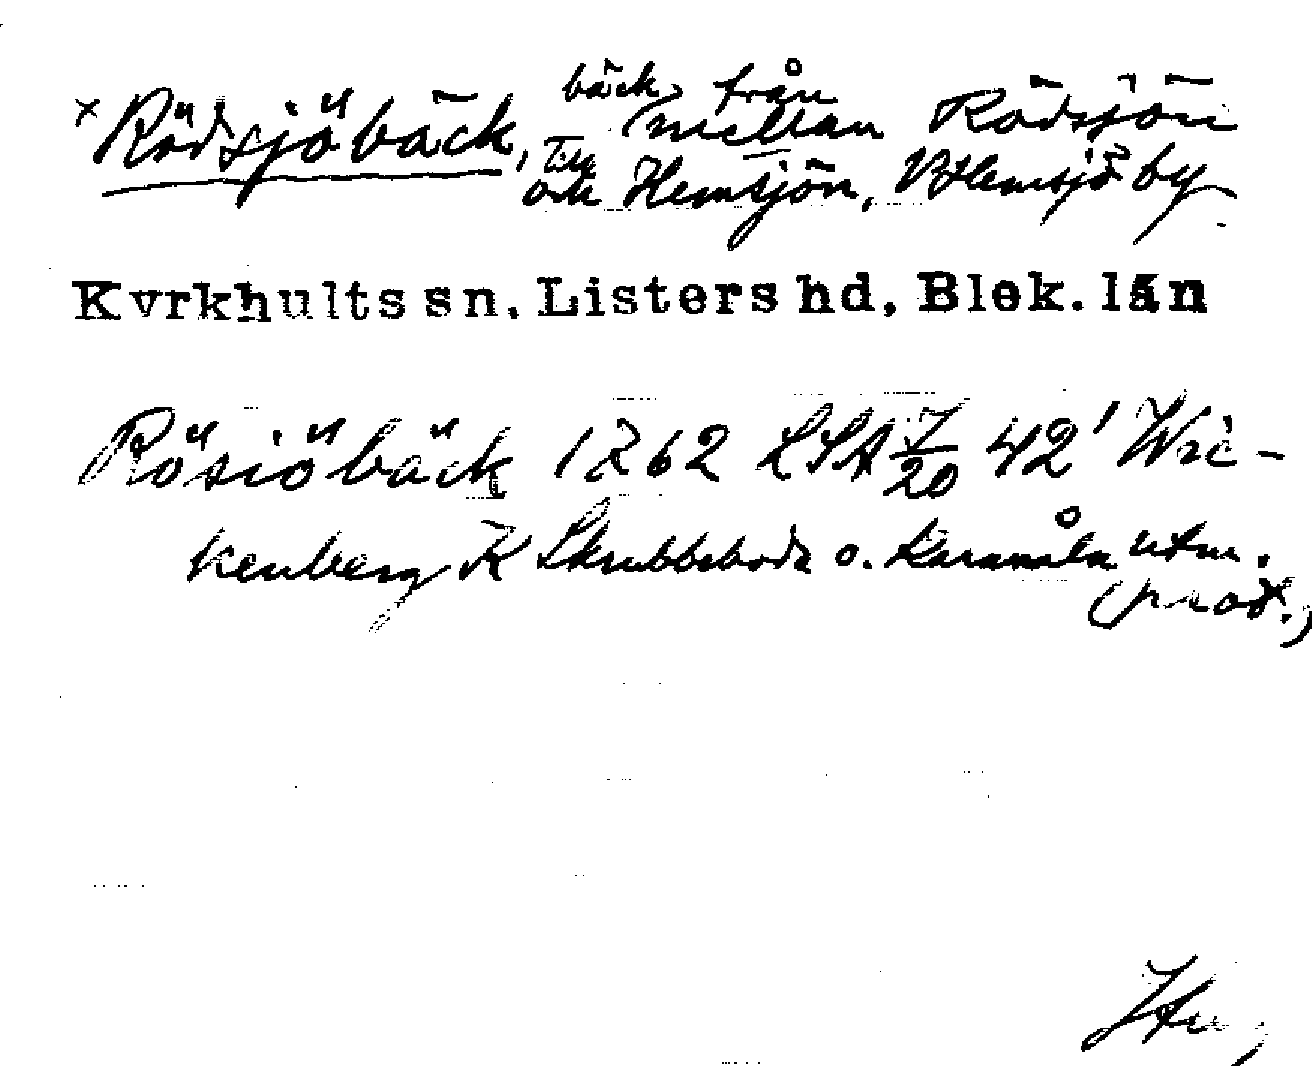 × Rödsjöbäck, bäck från mellan Rödsjön
till och Hemsjön, V Hemsjö by
Kyrkhults sn. Listers hd. Blek. län
Rösiöbäck 1762 LSA 7/20 42' Wic-
kenberg K Skrubbeboda o. Karamåla utm.
(prod.)